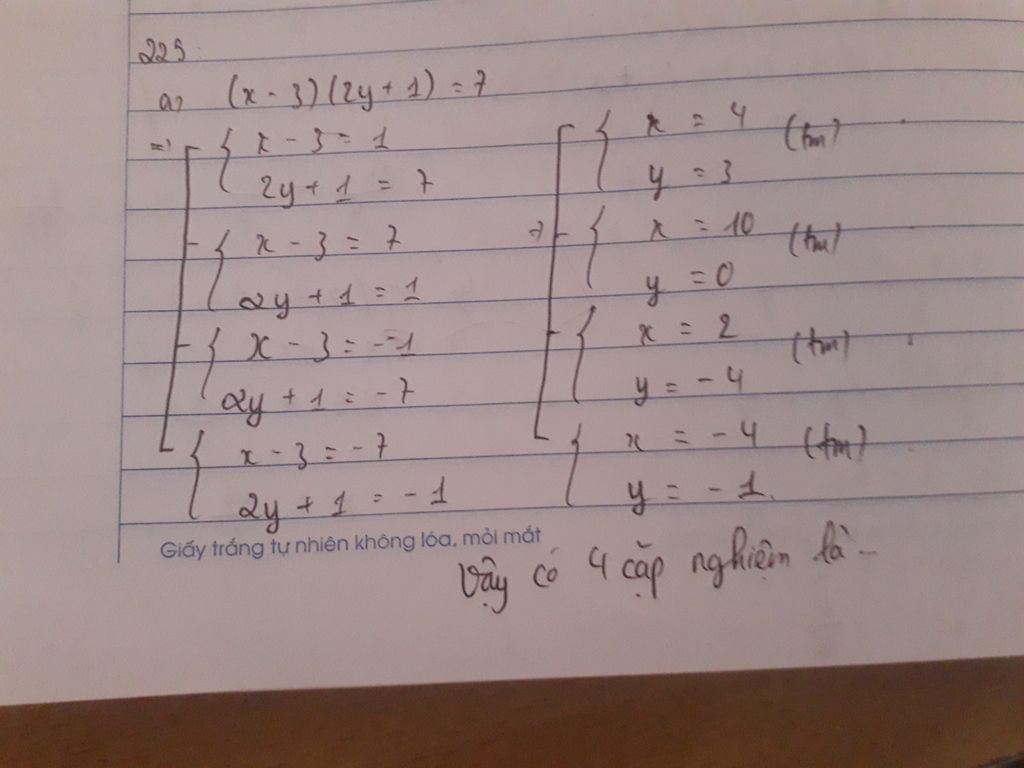 225.
a, (x - 3)(2y + 1) = 7
=> x - 3 = 1
2y + 1 = 7
x - 3 = 7
2y + 1 = 1
x - 3 = -1
2y + 1 = -7
x - 3 = -7
2y + 1 = -1
x = 4 (tm)
y = 3
=> x = 10 (tm)
y = 0
x = 2 (tm)
y = -4
x = -4 (tm)
y = -1.
Giấy trắng tự nhiên không lóa, mỏi mắt
Vậy có 4 cặp nghiệm là -